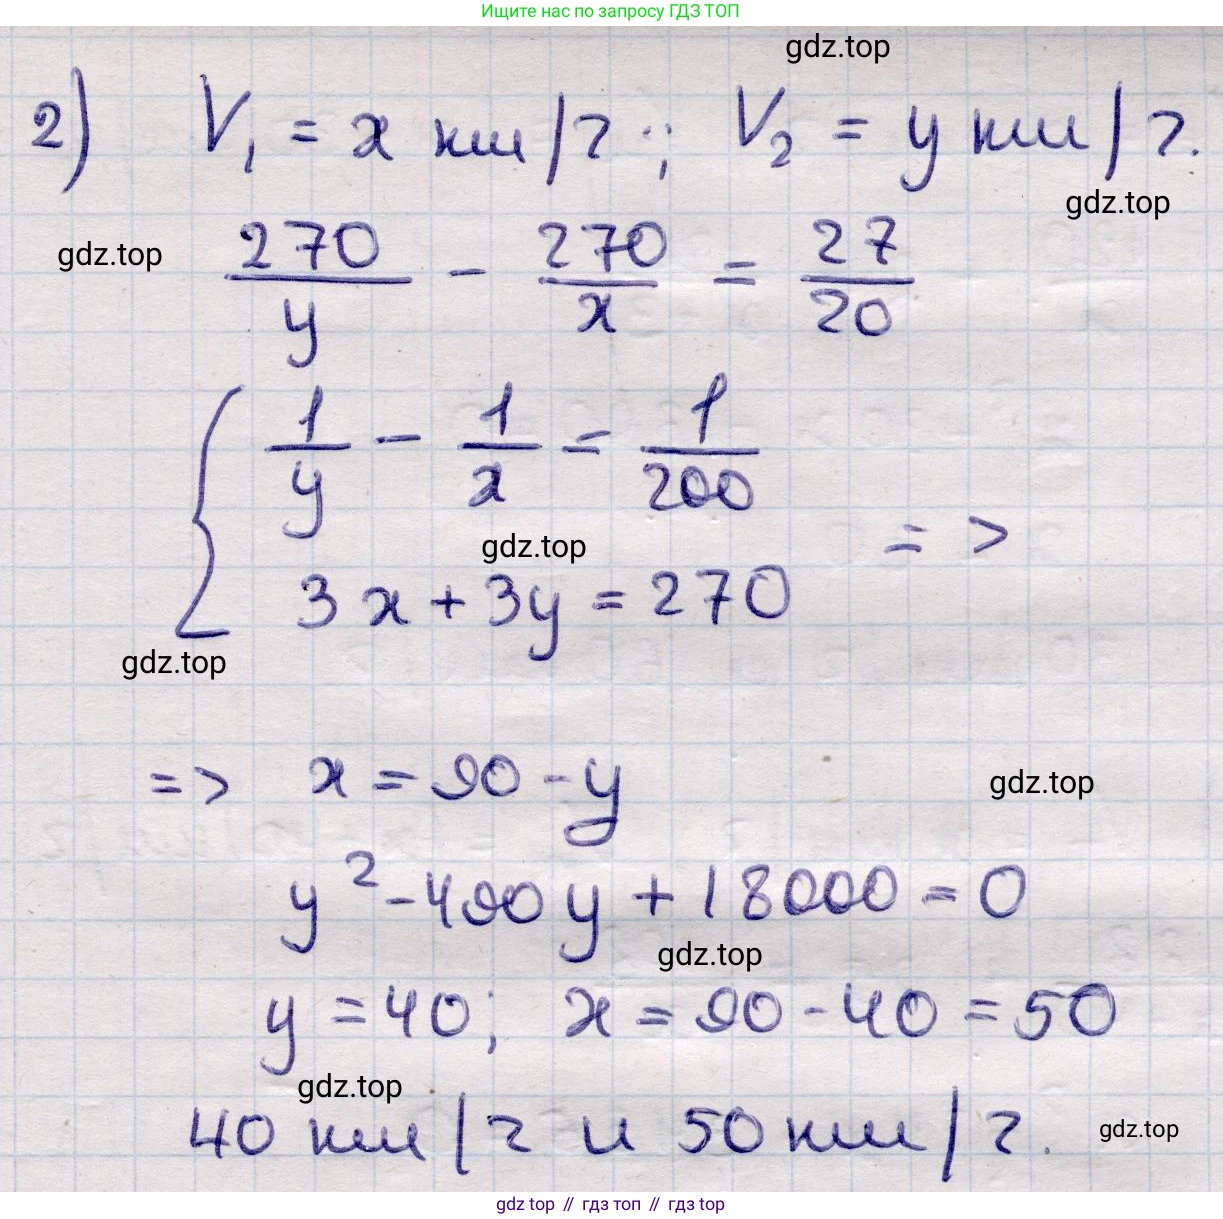 Ищите нас по запросу ГДЗ ТОП
gdz.top
2) V₁ = x км/ч; V₂ = y км/ч.
gdz.top
gdz.top
270/y - 270/x = 27/20
{ 1/y - 1/x = 1/200
gdz.top
3x + 3y = 270 =>
gdz.top
=> x = 90 - y
gdz.top
y² - 490y + 18000 = 0
gdz.top
y = 40; x = 90 - 40 = 50
gdz.top
40 км/ч и 50 км/ч.
gdz.top
gdz top // гдз топ // гдз top